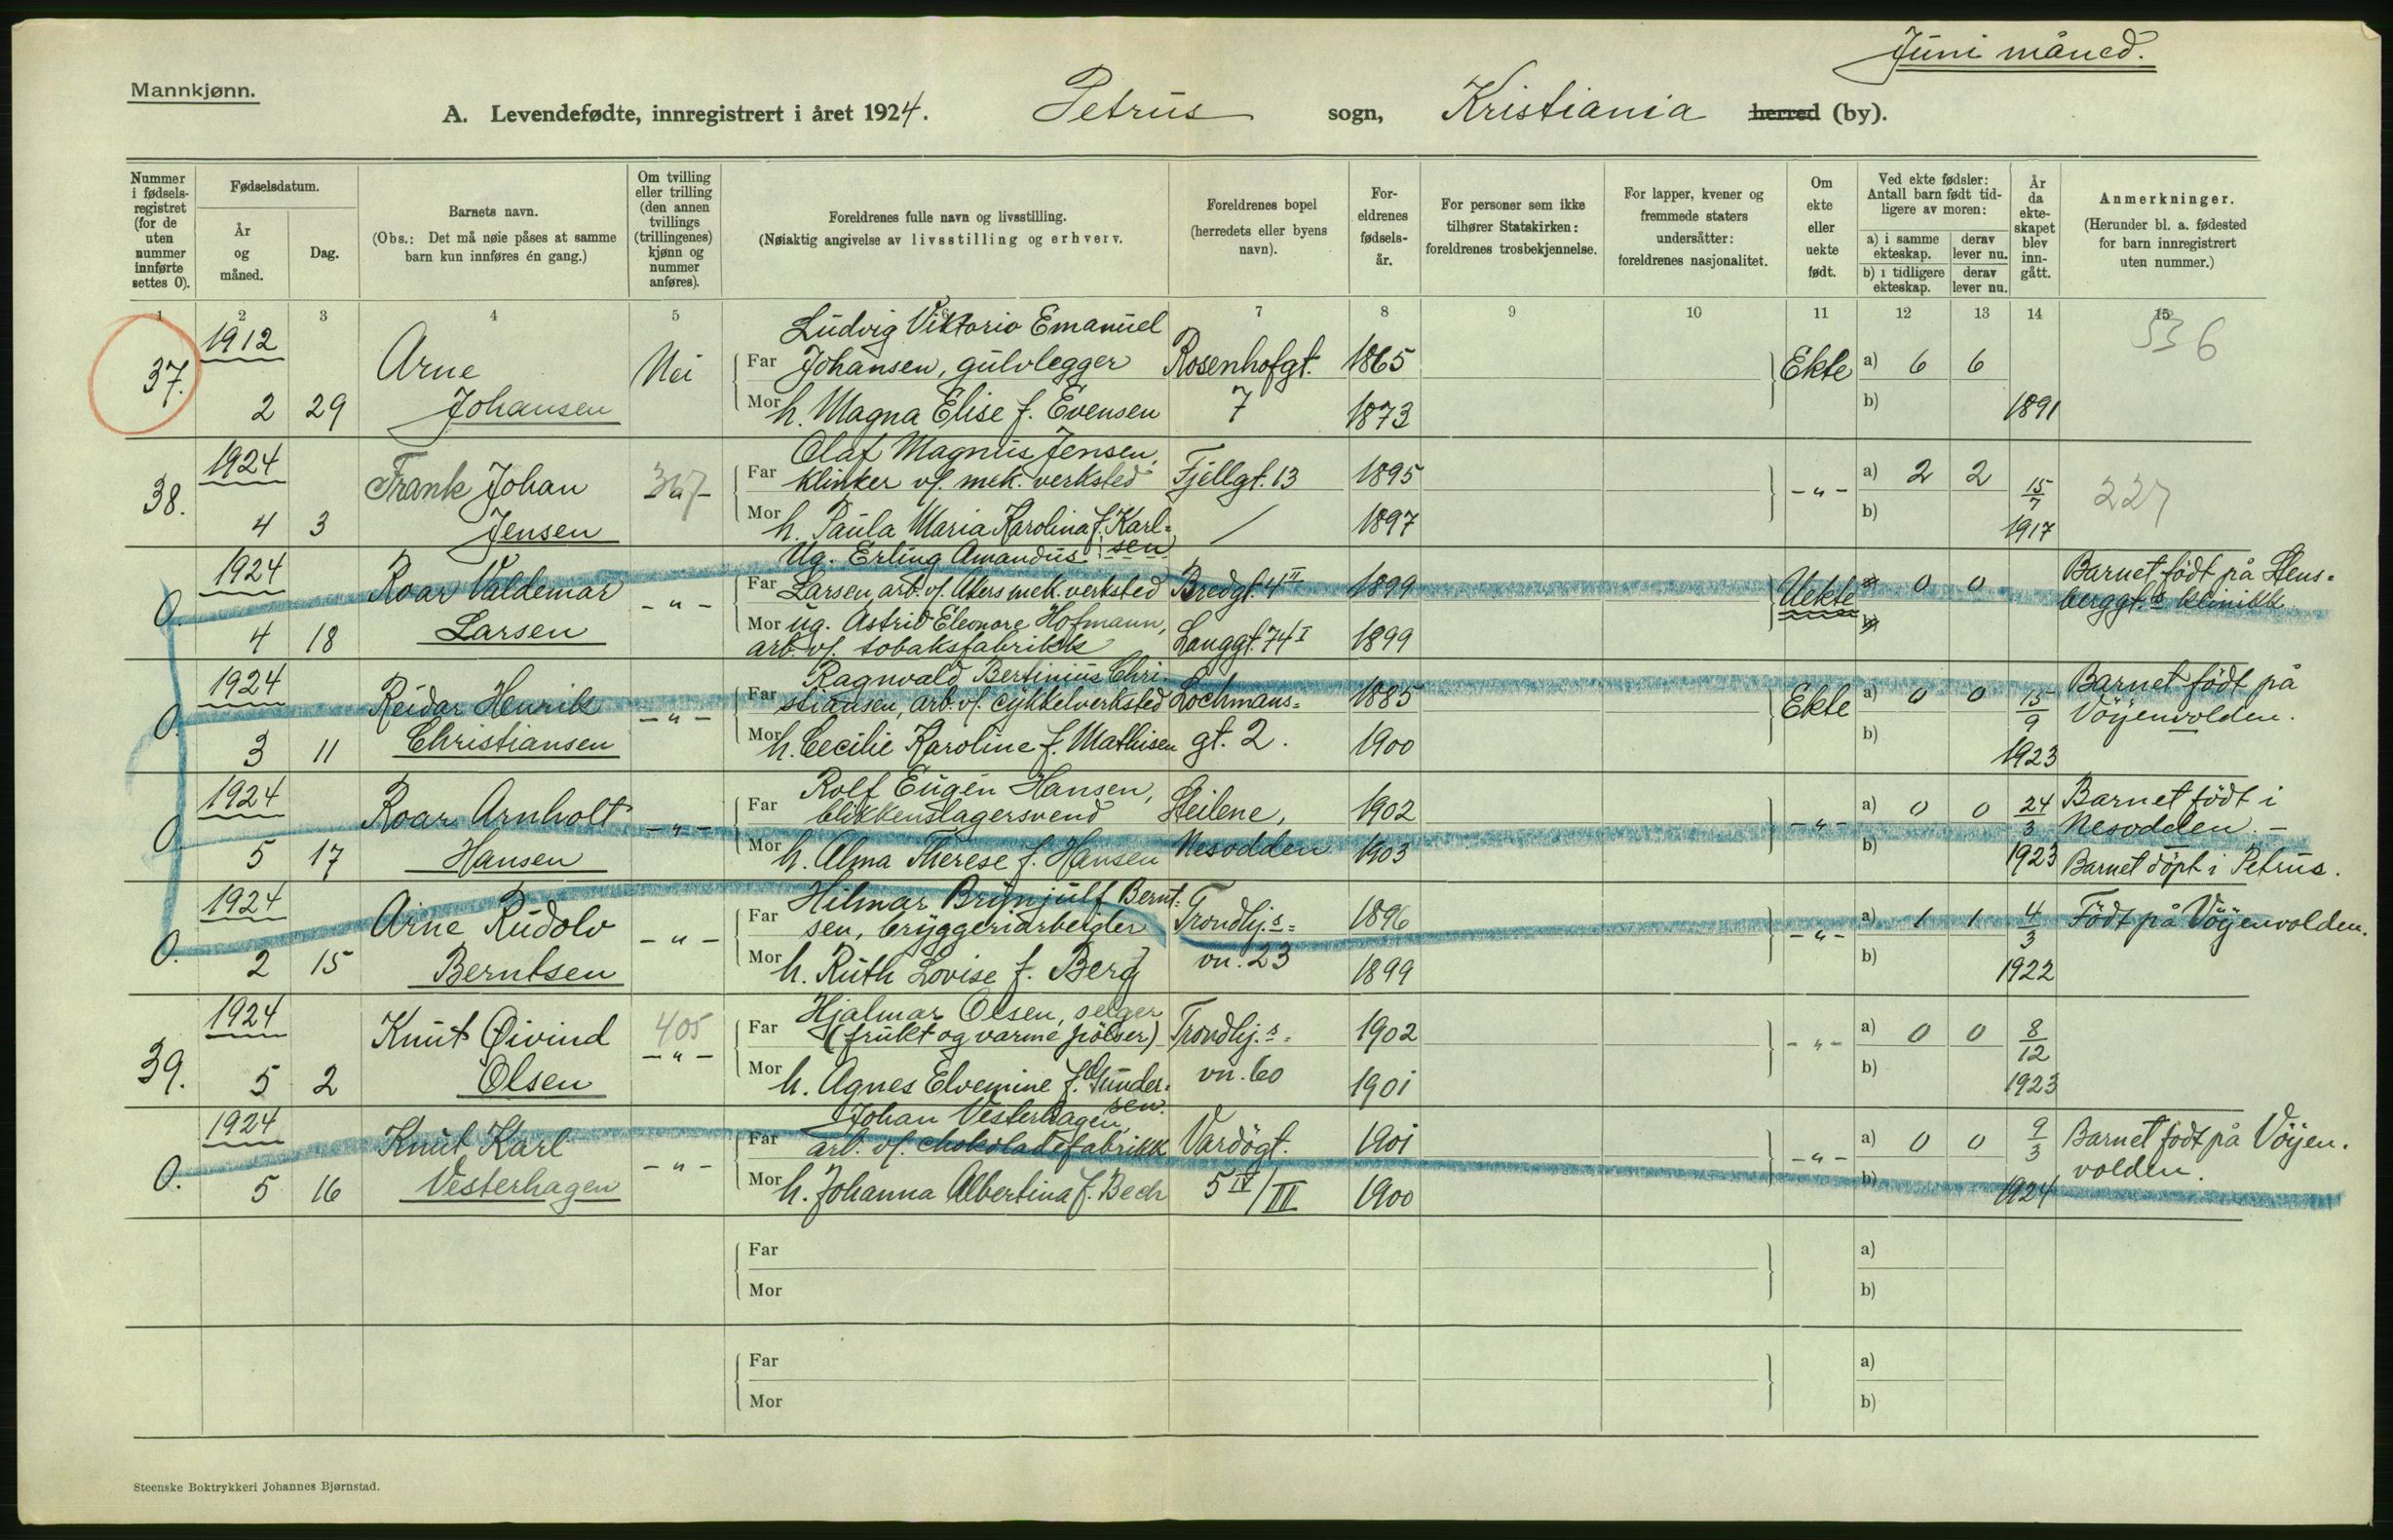 Juni måned.
Mannkjønn.
A. Levendefødte, innregistrert i året 1924. Petrus sogn, Kristiania herred (by).
Nummer i fødsels-registret (for de uten nummer innførte settes 0).
Fødselsdatum.
År og måned.
Dag.
Barnets navn.
(Obs.: Det må nøie påses at samme barn kun innføres én gang.)
Om tvilling eller trilling (den annen tvillings (trillingenes) kjønn og nummer anføres).
Foreldrenes fulle navn og livsstilling.
(Nøiaktig angivelse av livsstilling og erhverv.
Foreldrenes bopel (herredets eller byens navn).
For-eldrenes fødsels-år.
For personer som ikke tilhører Statskirken: foreldrenes trosbekjennelse.
For lapper, kvener og fremmede staters undersåtter: foreldrenes nasjonalitet.
Om ekte eller uekte født.
Ved ekte fødsler: Antall barn født tid-ligere av moren:
a) i samme ekteskap.
derav lever nu.
b) i tidligere ekteskap.
derav lever nu.
År da ekte-skapet blev inn-gått.
Anmerkninger.
(Herunder bl. a. fødested for barn innregistrert uten nummer.)
1 2 3 4 5 6 7 8 9 10 11 12 13 14 15
37. 1912 2 29
Arne
Johansen
Nei
Ludvig Viktorio Emanuel
Far Johansen, gulvlegger Rosenhofgt. 1865
Mor h. Magna Elise f. Evensen 7 1873
Ekte a) 6 6
b) 1891
536
38. 1924 4 3
Frank Johan
Jensen
367
-"-
Olaf Magnus Jensen,
Far klinker v/. mek. verksted Fjellgt. 13 1895
Mor h. Paula Maria Karolina f. Karl=
sen 1897
-"- a) 2 2
b) 15/7 1917
227
0. 1924 4 18
Roar Valdemar
Larsen
-"-
Ug. Erling Amandus
Far Larsen, arb. v/. Akers mek. verksted Bredgt. 4 II 1899
Mor ug. Astrid Eleonore Hofmann,
arb. v/. tobaksfabrikk Langgt. 74 I 1899
Uekte a) 0 0
b)
Barnet født på Stens=
berggt.s klinikk
0. 1924 3 11
Reidar Henrik
Christiansen
-"-
Ragnvald Bertinius Chri=
Far stiansen, arb. v/. cykkelverksted Lochmans= 1885
Mor h. Cecilie Karoline f. Mathisen gt. 2. 1900
Ekte a) 0 0
b) 15/9 1923
Barnet født på
Vøyenvolden.
0. 1924 5 17
Roar Arnholt
Hansen
-"-
Rolf Eugen Hansen,
Far blikkenslagersvend Steilene, 1902
Mor h. Alma Therese f. Hansen Nesodden 1903
-"- a) 0 0
b) 24/3 1923
Barnet født i
Nesodden. -
Barnet døpt i Petrus.
0. 1924 2 15
Arne Rudolv
Berntsen
-"-
Hilmar Brynjulf Bernt=
Far sen, bryggeriarbeider Trondhj.s= 1896
Mor h. Ruth Lovise f. Berg vn. 23 1899
-"- a) 1 1
b) 4/3 1922
Født på Vøyenvolden.
39. 1924 5 2
Knut Øivind
Olsen
405
-"-
Hjalmar Olsen, selger
Far (frukt og varme pølser) Trondhj.s= 1902
Mor h. Agnes Elvemine f. Gunder=
sen. vn. 60 1901
-"- a) 0 0
b) 8/12 1923
0. 1924 5 16
Knut Karl
Vesterhagen
-"-
Johan Vesterhagen,
Far arb. v/. chokoladefabrikk Vardøgt. 1901
Mor h. Johanna Albertina f. Bech 5 IV/III 1900
-"- a) 0 0
b) 9/3 1924
Barnet født på Vøyen.
volden.
Far a)
Mor b)
Far a)
Mor b)
Steenske Boktrykkeri Johannes Bjørnstad.